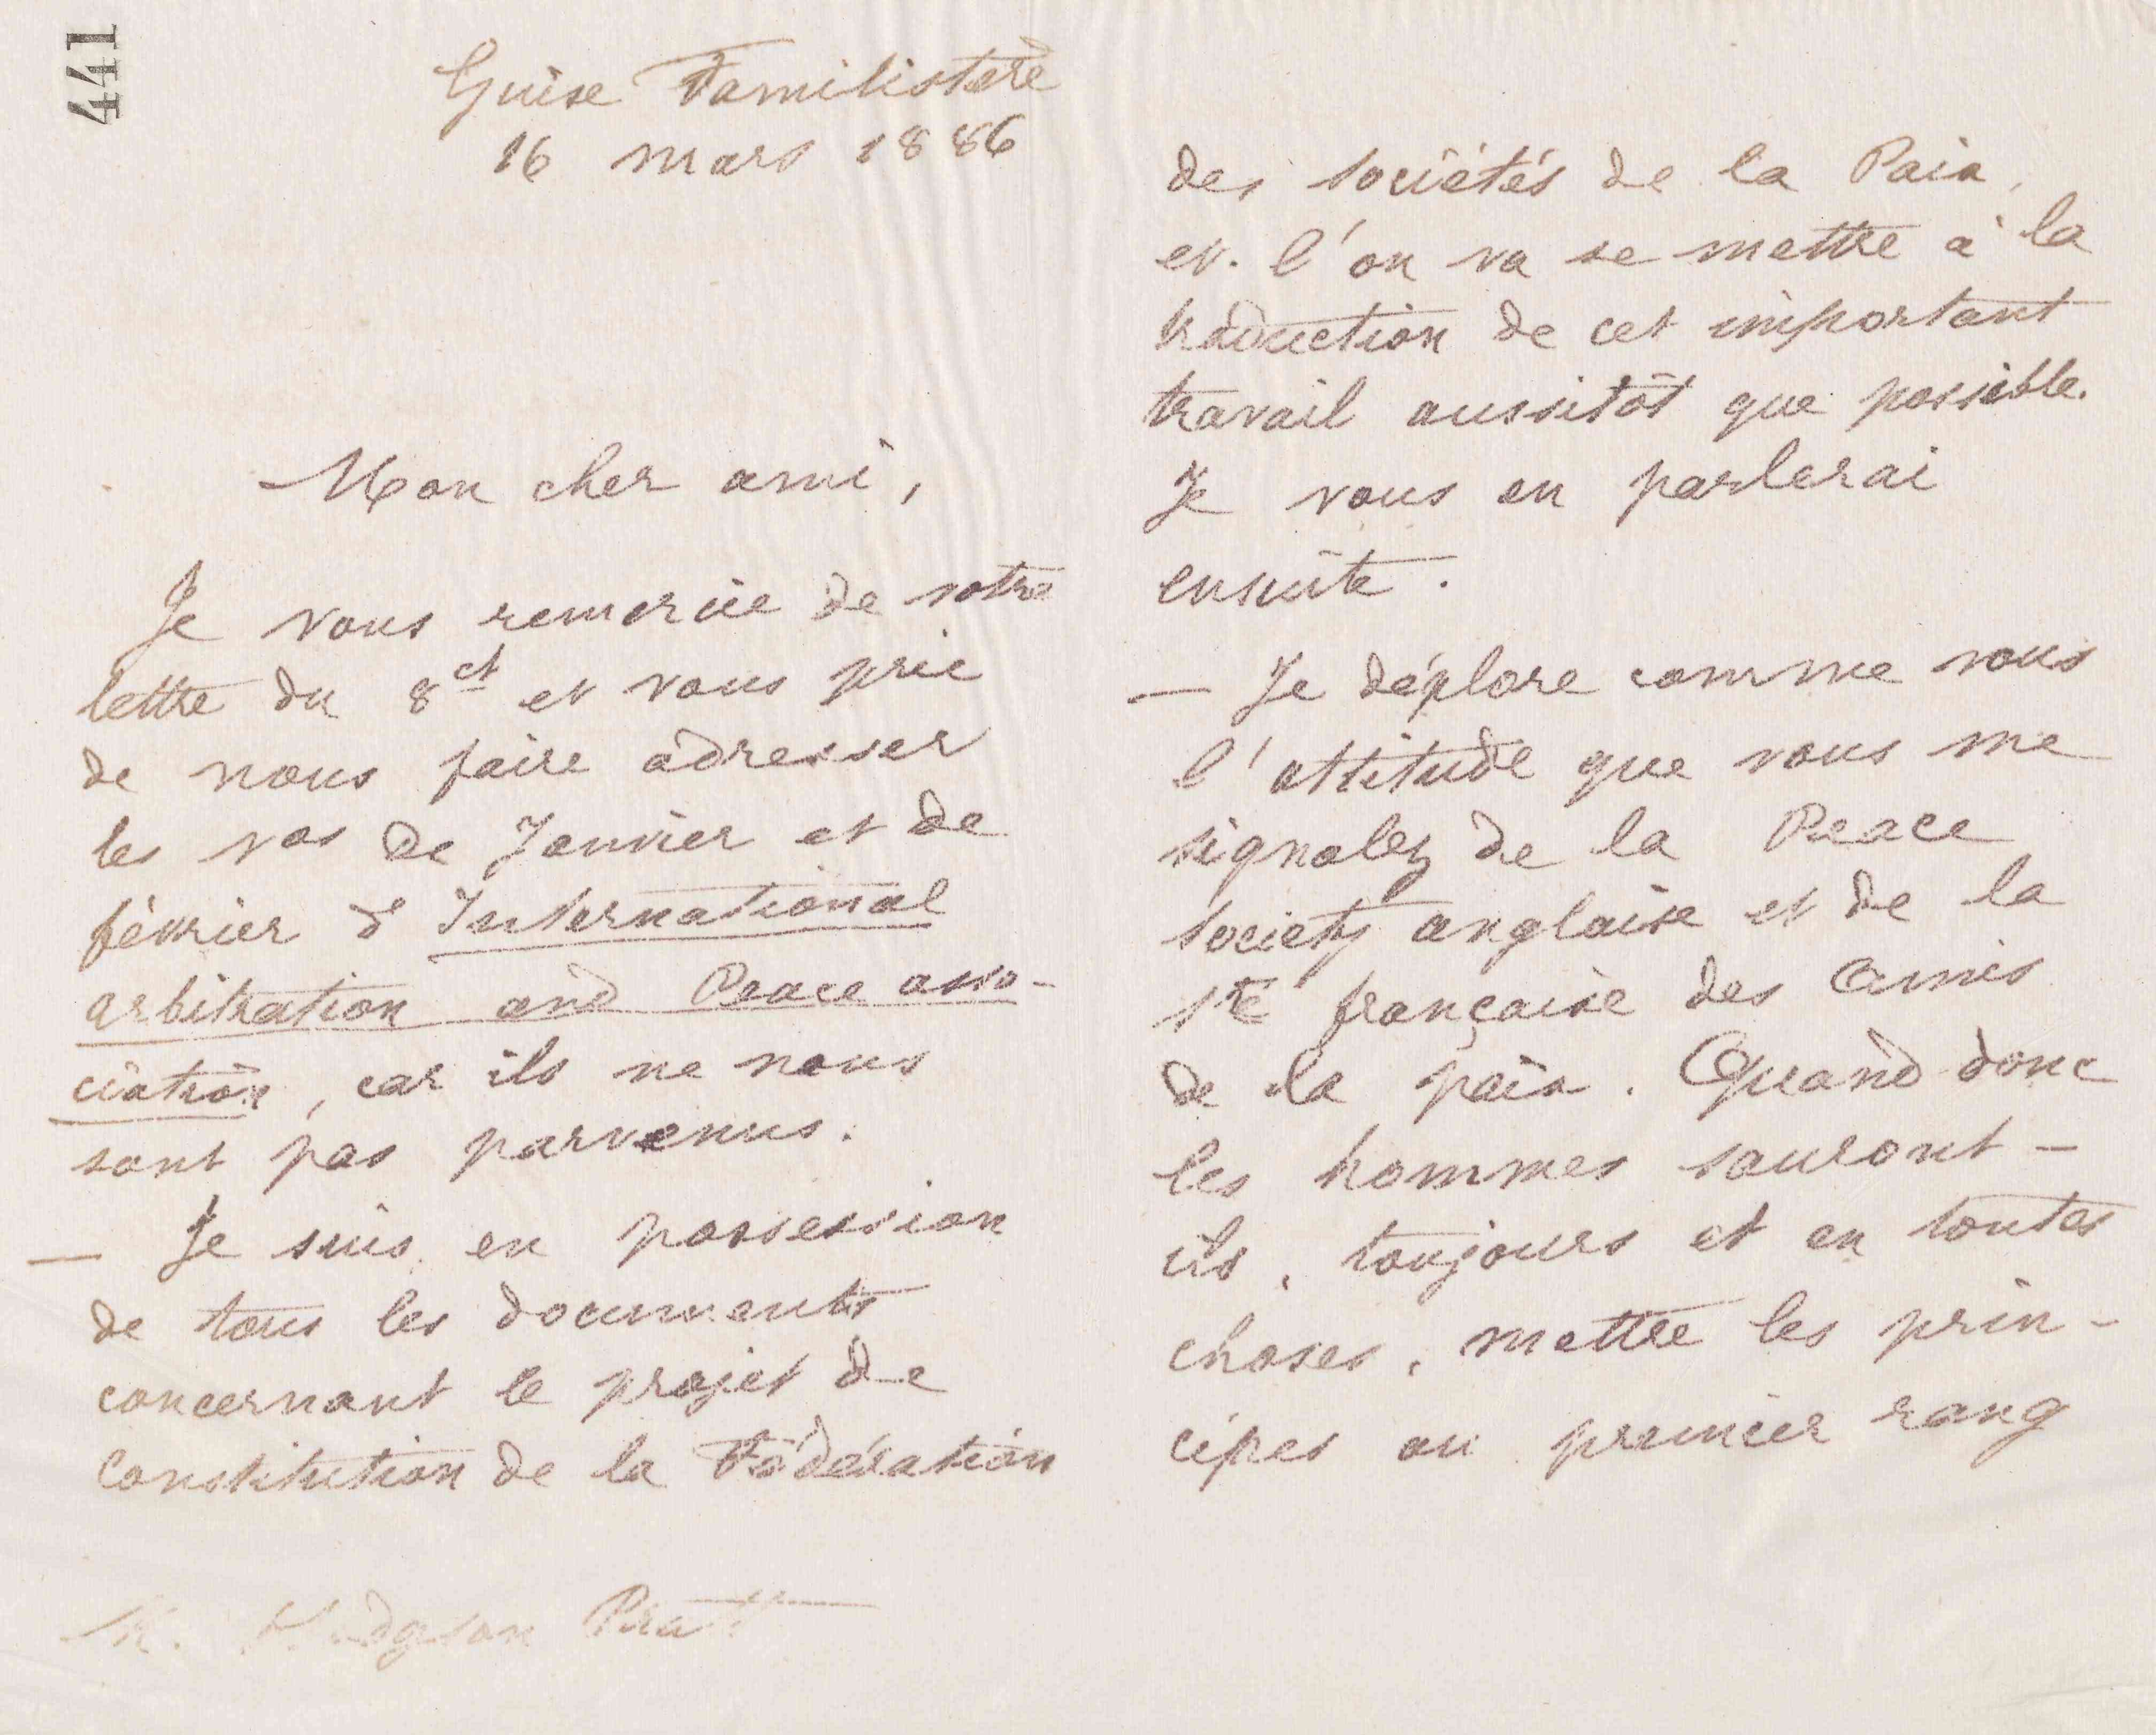 441
Guise Familistère
16 mars 1886
Mon cher ami,
Je vous remercie de votre
lettre du 8 ct et vous prie
de nous faire adresser
les nos de Janvier et de
février d' International
arbitration and Peace asso-
ciation, car ils ne nous
sont pas parvenus.
— Je suis en possession
de tous les documents
concernant le projet de
Constitution de la Fédération
M. Hodgson Pratt
des sociétés de la Paix,
et l'on va se mettre à la
traduction de cet important
travail aussitôt que possible.
Je vous en parlerai
ensuite.
— Je déplore comme vous
l'attitude que vous me
signalez de la Peace
society anglaise et de la
sté française des Amis
de la paix. Quand donc
les hommes sauront-
ils, toujours et en toutes
choses, mettre les prin-
cipes au premier rang